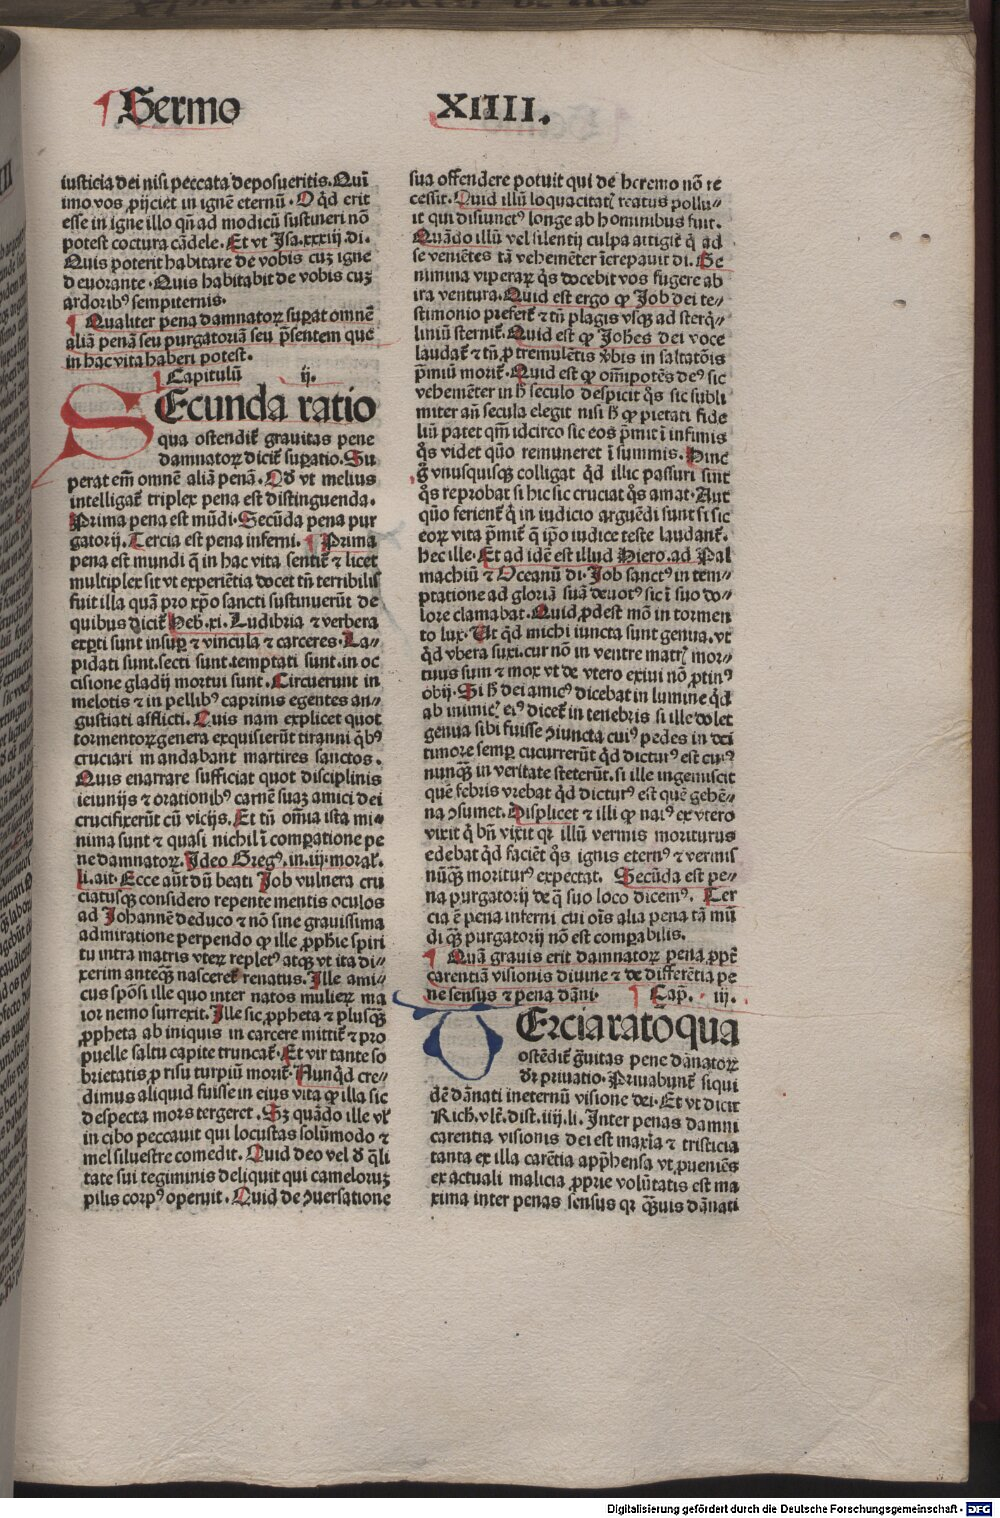 Sermo XIIII.
iusticia dei nisi peccata deposueritis. Qui
imo vos ꝓijciet in ignē eternū. O qͥd erit
esse in igne illo qn̄ ad modicū sustineri nō
potest coctura cādele. Et vt Jsa.xxxiij.di.
Quis poterit habitare de vobis cuꝫ igne
deuorante. Quis habitabit de vobis cuꝫ
ardoribꝰ sempiternis.
¶ Qualiter pena damnatoꝝ suꝑat omnē
aliā penā seu purgatoriā seu p̄sentem que
in hac vita haberi potest.
¶ Capitulū ij.
SEcunda ratio
qua ostendit̄ grauitas pene
damnatoꝝ dicit̄ suꝑatio. Su
perat em̄ omnē aliā penā. Qd̓ vt melius
intelligat̄ triplex pena est distinguenda.
Prima pena est mūdi. Secūda pena pur
gatorij. Tercia est pena inferni. ¶ Prima
pena est mundi q̄ in hac vita sentit̄ ⁊ licet
multiplex sit vt experiētia docet tn̄ terribilis
fuit illa quā pro xp̄o sancti sustinuerūt de
quibus dicit̄ Heb̓.xi. Ludibria ⁊ verbera
exꝑti sunt insuꝑ ⁊ vincula ⁊ carceres. La⸗
pidati sunt.secti sunt.temptati sunt.in oc
cisione gladij mortui sunt. Circuerunt in
melotis ⁊ in pellibꝰ caprinis egentes an⸗
gustiati afflicti. Quis nam explicet quot
tormentoꝝ genera exquisierūt tiranni qͥbꝰ
cruciari mandabant martires sanctos.
Quis enarrare sufficiat quot disciplinis
ieiunijs ⁊ orationibꝰ carnē suaꝫ amici dei
crucifixerūt cū vicijs. Et tn̄ om̄ia ista mi⸗
nima sunt ⁊ quasi nichil ī comꝑatione pe
ne damnatoꝝ. Jdeo Gregꝰ.in.iij.moral̓.
li.ait. Ecce aūt dū beati Job vulnera cru
ciatusqꝫ considero repente mentis oculos
ad Johannē deduco ⁊ nō sine grauissima
admiratione perpendo ꝙ ille ꝓph̄ie spiri
tu intra matris vteꝝ repletꝰ atqꝫ vt ita di⸗
xerim anteqꝫ̄ nasceret̄ renatus. Jlle ami⸗
cus spōsi ille quo inter natos mulieꝝ ma
ior nemo surrexit. Jlle sic ꝓpheta ⁊ plusqꝫ̄
ꝓpheta ab iniquis in carcere mittit̄ ⁊ pro
puelle saltu capite truncat̄. Et vir tante so
brietatis ꝓ risu turpiū morit̄. Nunqͥd cre⸗
dimus aliquid fuisse in eius vita ꝙ illa sic
despecta mors tergeret. Sꝫ quādo ille vl̓
in cibo peccauit qui locustas solūmodo ⁊
mel siluestre comedit. Quid deo vel d̓ q̄li
tate sui tegiminis deliquit qui cameloruꝫ
pilis corpꝰ operuit. Quid de ꝯuersatione
sua offendere potuit qui de heremo nō re
cessit. Quid illū loquacitatꝭ reatus pollu⸗
it qui disiunctꝰ longe ab hominibus fuit.
Quādo illū vel silentij culpa attigit q̄ ad
se veniētes tā vehemēter īcrepauit di. Ge
nimina viperaꝝ qͥs docebit vos fugere ab
ira ventura. Quid est ergo ꝙ Job dei te⸗
stimonio prefert̄ ⁊ tn̄ plagis vsqꝫ ad sterqͥ⸗
liniū sternit̄. Quid est ꝙ Joh̄es dei voce
laudat̄ ⁊ tn̄ ꝓ tremulētis v̓bis in saltatōis
p̄miū morit̄. Quid est ꝙ om̄ipotēs deꝰ sic
vehemēter in h̓ seculo despicit qͦs sic subli
miter an̄ secula elegit nisi h̓ ꝙ pietati fide
liū patet qm̄ idcirco sic eos p̄mit ī infimis
qͦs videt quō remuneret ī summis. Hinc
g̓ vnusquisqꝫ colligat qͥd illic passuri sint
qͦs reprobat si hic sic cruciat qͦs amat. Aut
quō ferient̄ qͥ in iudicio arguēdi sunt si sic
eoꝝ vita p̄mit̄ q̄ ip̄o iudice teste laudant̄.
hec ille. Et ad idē est illud Hiero.ad Pal
machiū ⁊ Oceanū di. Job sanctꝰ in tem⸗
ptatione ad gloriā suā deuotꝰ sic ī suo do⸗
lore clamabat. Quid ꝓdest mō in tormen
to lux. Ut qͥd michi iuncta sunt genua. vt
qͥd vbera suxi. cur nō in ventre matrꝭ mor⸗
tuus sum ⁊ mox vt de vtero exiui nō ꝓtinꝰ
obij. Si h̓ dei amicꝰ dicebat in lumine qͥd
ab inimicꝭ eiꝰ dicet̄ in tenebris si ille dolet
genua sibi fuisse ꝯiuncta cuiꝰ pedes in dei
timore semꝑ cucurrerūt qͥd dicturꝰ est cuiꝰ
nunqꝫ̄ in veritate steterūt. si ille ingemiscit
quē febris vrebat qͥd dicturꝰ est quē gehē⸗
na ꝯsumet. Displicet ⁊ illi ꝙ natꝰ ex vtero
vixit q̄ bn̄ vixit qꝛ illū vermis moriturus
edebat qͥd faciēt qͦs ignis eternꝰ ⁊ vermis
nūqꝫ̄ moriturꝰ expectat. Secūda est pe⸗
na purgatorij de q̄ suo loco dicemꝰ. Ter
cia ē pena inferni cui oīs alia pena tā mū
di qꝫ̄ purgatorij nō est comꝑabilis.
¶ Quā grauis erit damnatoꝝ pena ꝓpt̄
carentiā visionis diuine ⁊ de differētia pe
ne sensus ⁊ pena dāni. ¶ Cap. iij.
TErcia rato qua
ostēdit̄ gͣuitas pene dānatoꝝ
dr̄ priuatio. Priuabunt̄ siqui
dē dānati in eternū visione dei. Et vt dicit
Rich̓.vlt̄.dist.iiij.li. Inter penas damni
carentia visionis dei est maxīa ⁊ tristicia
tanta ex illa carētia app̄hensa vt ꝓueniēs
ex actuali malicia ꝓprie volūtatis est ma
xima inter penas sensus qꝛ qꝫ̄uis dānati
Digitalisierung gefördert durch die Deutsche Forschungsgemeinschaft - DFG